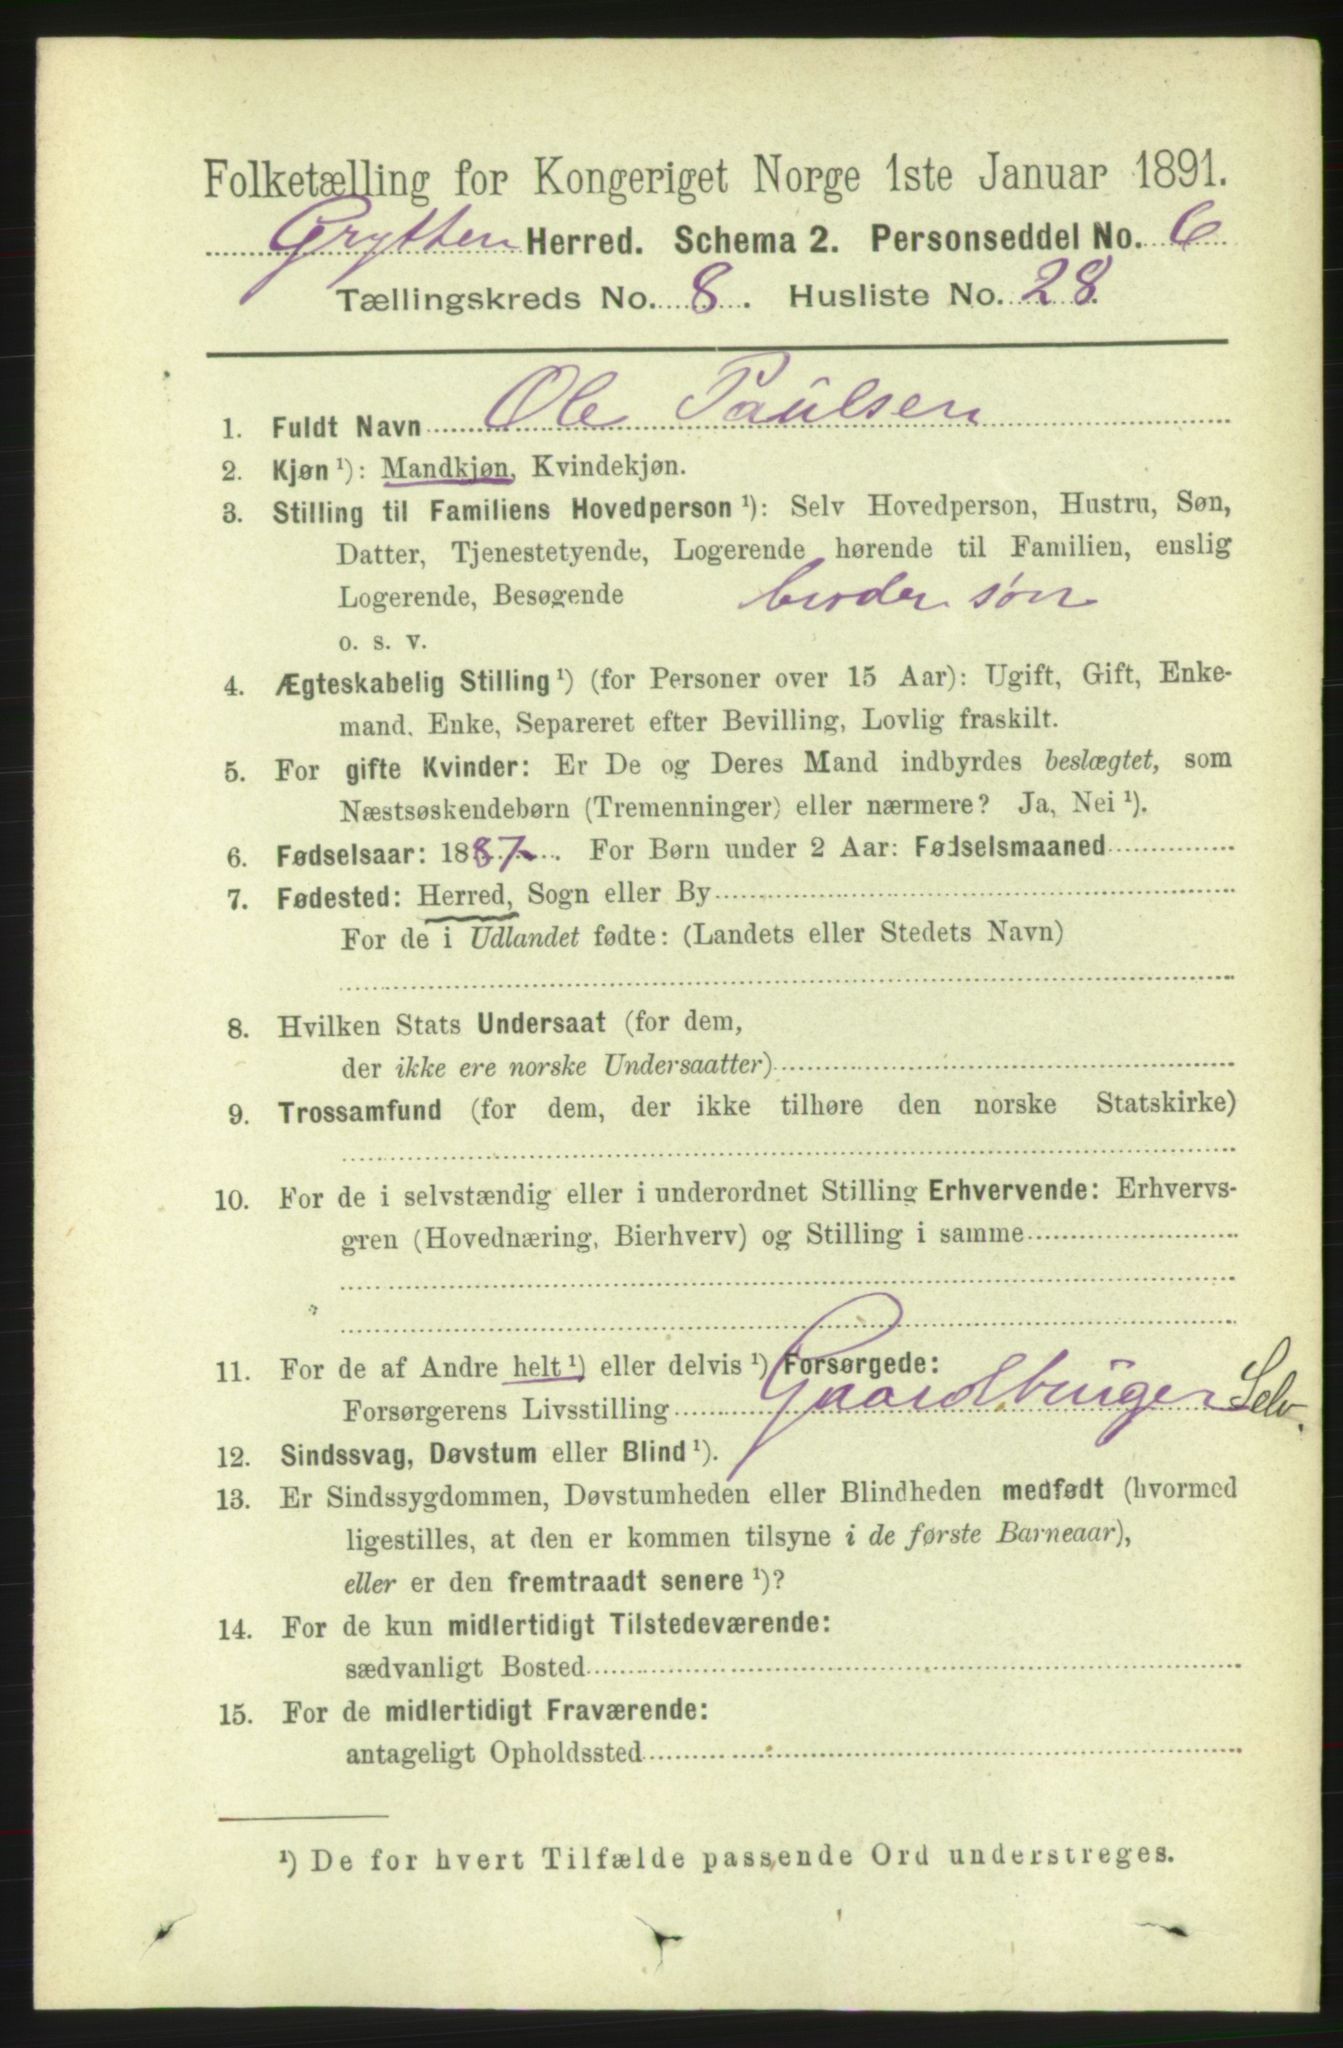 Folketælling for Kongeriget Norge 1ste Januar 1891.
Grytten Herred. Schema 2. Personseddel No. 6
Tællingskreds No. 8. Husliste No. 28.
1. Fuldt Navn Ole Paulsen
2. Kjøn ¹): Mandkjøn, Kvindekjøn.
3. Stilling til Familiens Hovedperson ¹): Selv Hovedperson, Hustru, Søn,
Datter, Tjenestetyende, Logerende hørende til Familien, enslig
Logerende, Besøgende broder søn
o. s. v.
4. Ægteskabelig Stilling ¹) (for Personer over 15 Aar): Ugift, Gift, Enke-
mand, Enke, Separeret efter Bevilling, Lovlig fraskilt.
5. For gifte Kvinder: Er De og Deres Mand indbyrdes beslægtet, som
Næstsøskendebørn (Tremenninger) eller nærmere? Ja, Nei ¹).
6. Fødselsaar: 1887. For Børn under 2 Aar: Fødselsmaaned
7. Fødested: Herred, Sogn eller By
For de i Udlandet fødte: (Landets eller Stedets Navn)
8. Hvilken Stats Undersaat (for dem,
der ikke ere norske Undersaatter)
9. Trossamfund (for dem, der ikke tilhøre den norske Statskirke)
10. For de i selvstændig eller i underordnet Stilling Erhvervende: Erhvervs-
gren (Hovednæring, Bierhverv) og Stilling i samme
11. For de af Andre helt ¹) eller delvis ¹) Forsørgede:
Forsørgerens Livsstilling Gaardbruger Selv.
12. Sindssvag, Døvstum eller Blind ¹).
13. Er Sindssygdommen, Døvstumheden eller Blindheden medfødt (hvormed
ligestilles, at den er kommen tilsyne i de første Barneaar),
eller er den fremtraadt senere ¹)?
14. For de kun midlertidigt Tilstedeværende:
sædvanligt Bosted
15. For de midlertidigt Fraværende:
antageligt Opholdssted
¹) De for hvert Tilfælde passende Ord understreges.